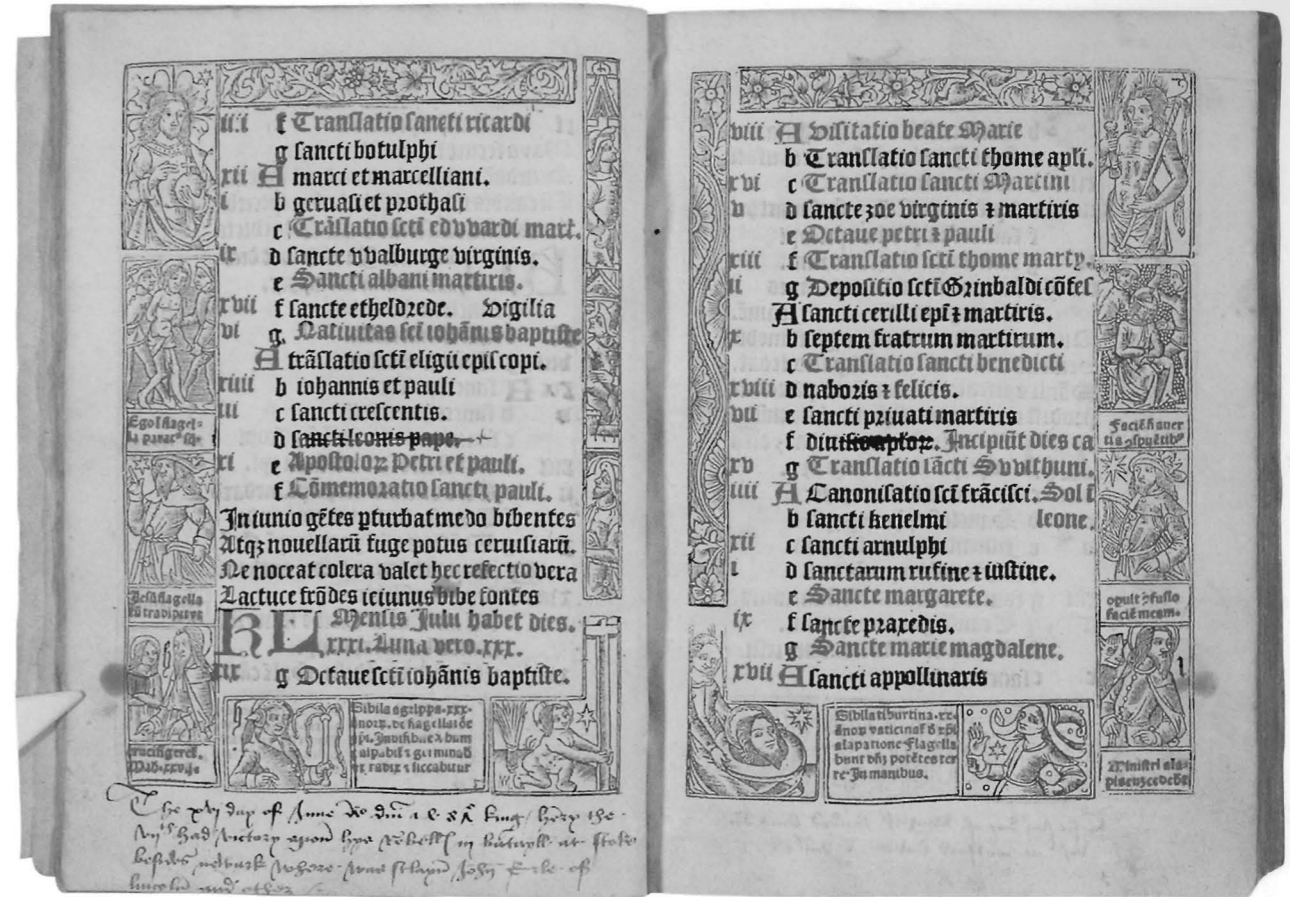 iiii f Translatio sancti ricardi
g sancti botulphi
xii A marci et marcelliani.
i b geruasi et prothasi
c Trāslatio scti edvvardi mart.
ix d sancte vvalburge virginis.
e Sancti albani martiris.
xvii f sancte etheldrede. Vigilia
vi g. Natiuitas sci iohānis baptiste
A trāslatio sctī eligii epis copi.
xiiii b iohannis et pauli
iii c sancti crescentis.
d sancti leonis pape.
xi e Apostoloꝝ Petri et pauli.
f Cōmemoratio sancti pauli.
In iunio gētes pturbat medo bibentes
Atqꝫ nouellarū fuge potus ceruisiarū.
Ne noceat colera valet hec refectio vera
Lactuce frōdes ieiunus bibe fontes
KL Mensis Julii habet dies.
xxxi. Luna vero. xxx.
xix g Octaue scti iohānis baptiste.
Sibila agrippa. xxx.
crucifigeret.
The xvi day of June Ao dm king hery the
viith had victory upon hys rebell in batayll at Stoke
besydes newark where was slayn John Erle of
lincoln and other
viii A Visitatio beate Marie
b Translatio sancti thome apli.
xvi c Translatio sancti Martini
v d sancte zoe virginis ⁊ martiris
e Octaue petri ⁊ pauli
xiii f Translatio sctī thome marty.
ii g Depositio sctī Grinbaldi cōfes
A sancti cerilli epī ⁊ martiris.
x b septem fratrum martirum.
c Translatio sancti benedicti
xviii d naboris ⁊ felicis.
vii e sancti priuati martiris
f diuisio aploꝝ. Incipiūt dies ca
xv g Translatio sācti Svvithuni.
iiii A Canonisatio scī frācisci. Sol ī
b sancti kenelmi leone.
xii c sancti arnulphi
i d sanctarum rufine ⁊ iustine.
e Sancte margarete.
ix f sancte praxedis.
g Sancte marie magdalene.
xvii A sancti appollinaris
Sibila tiburtina. xx.
alapatione. Flagella
re. In manibus.